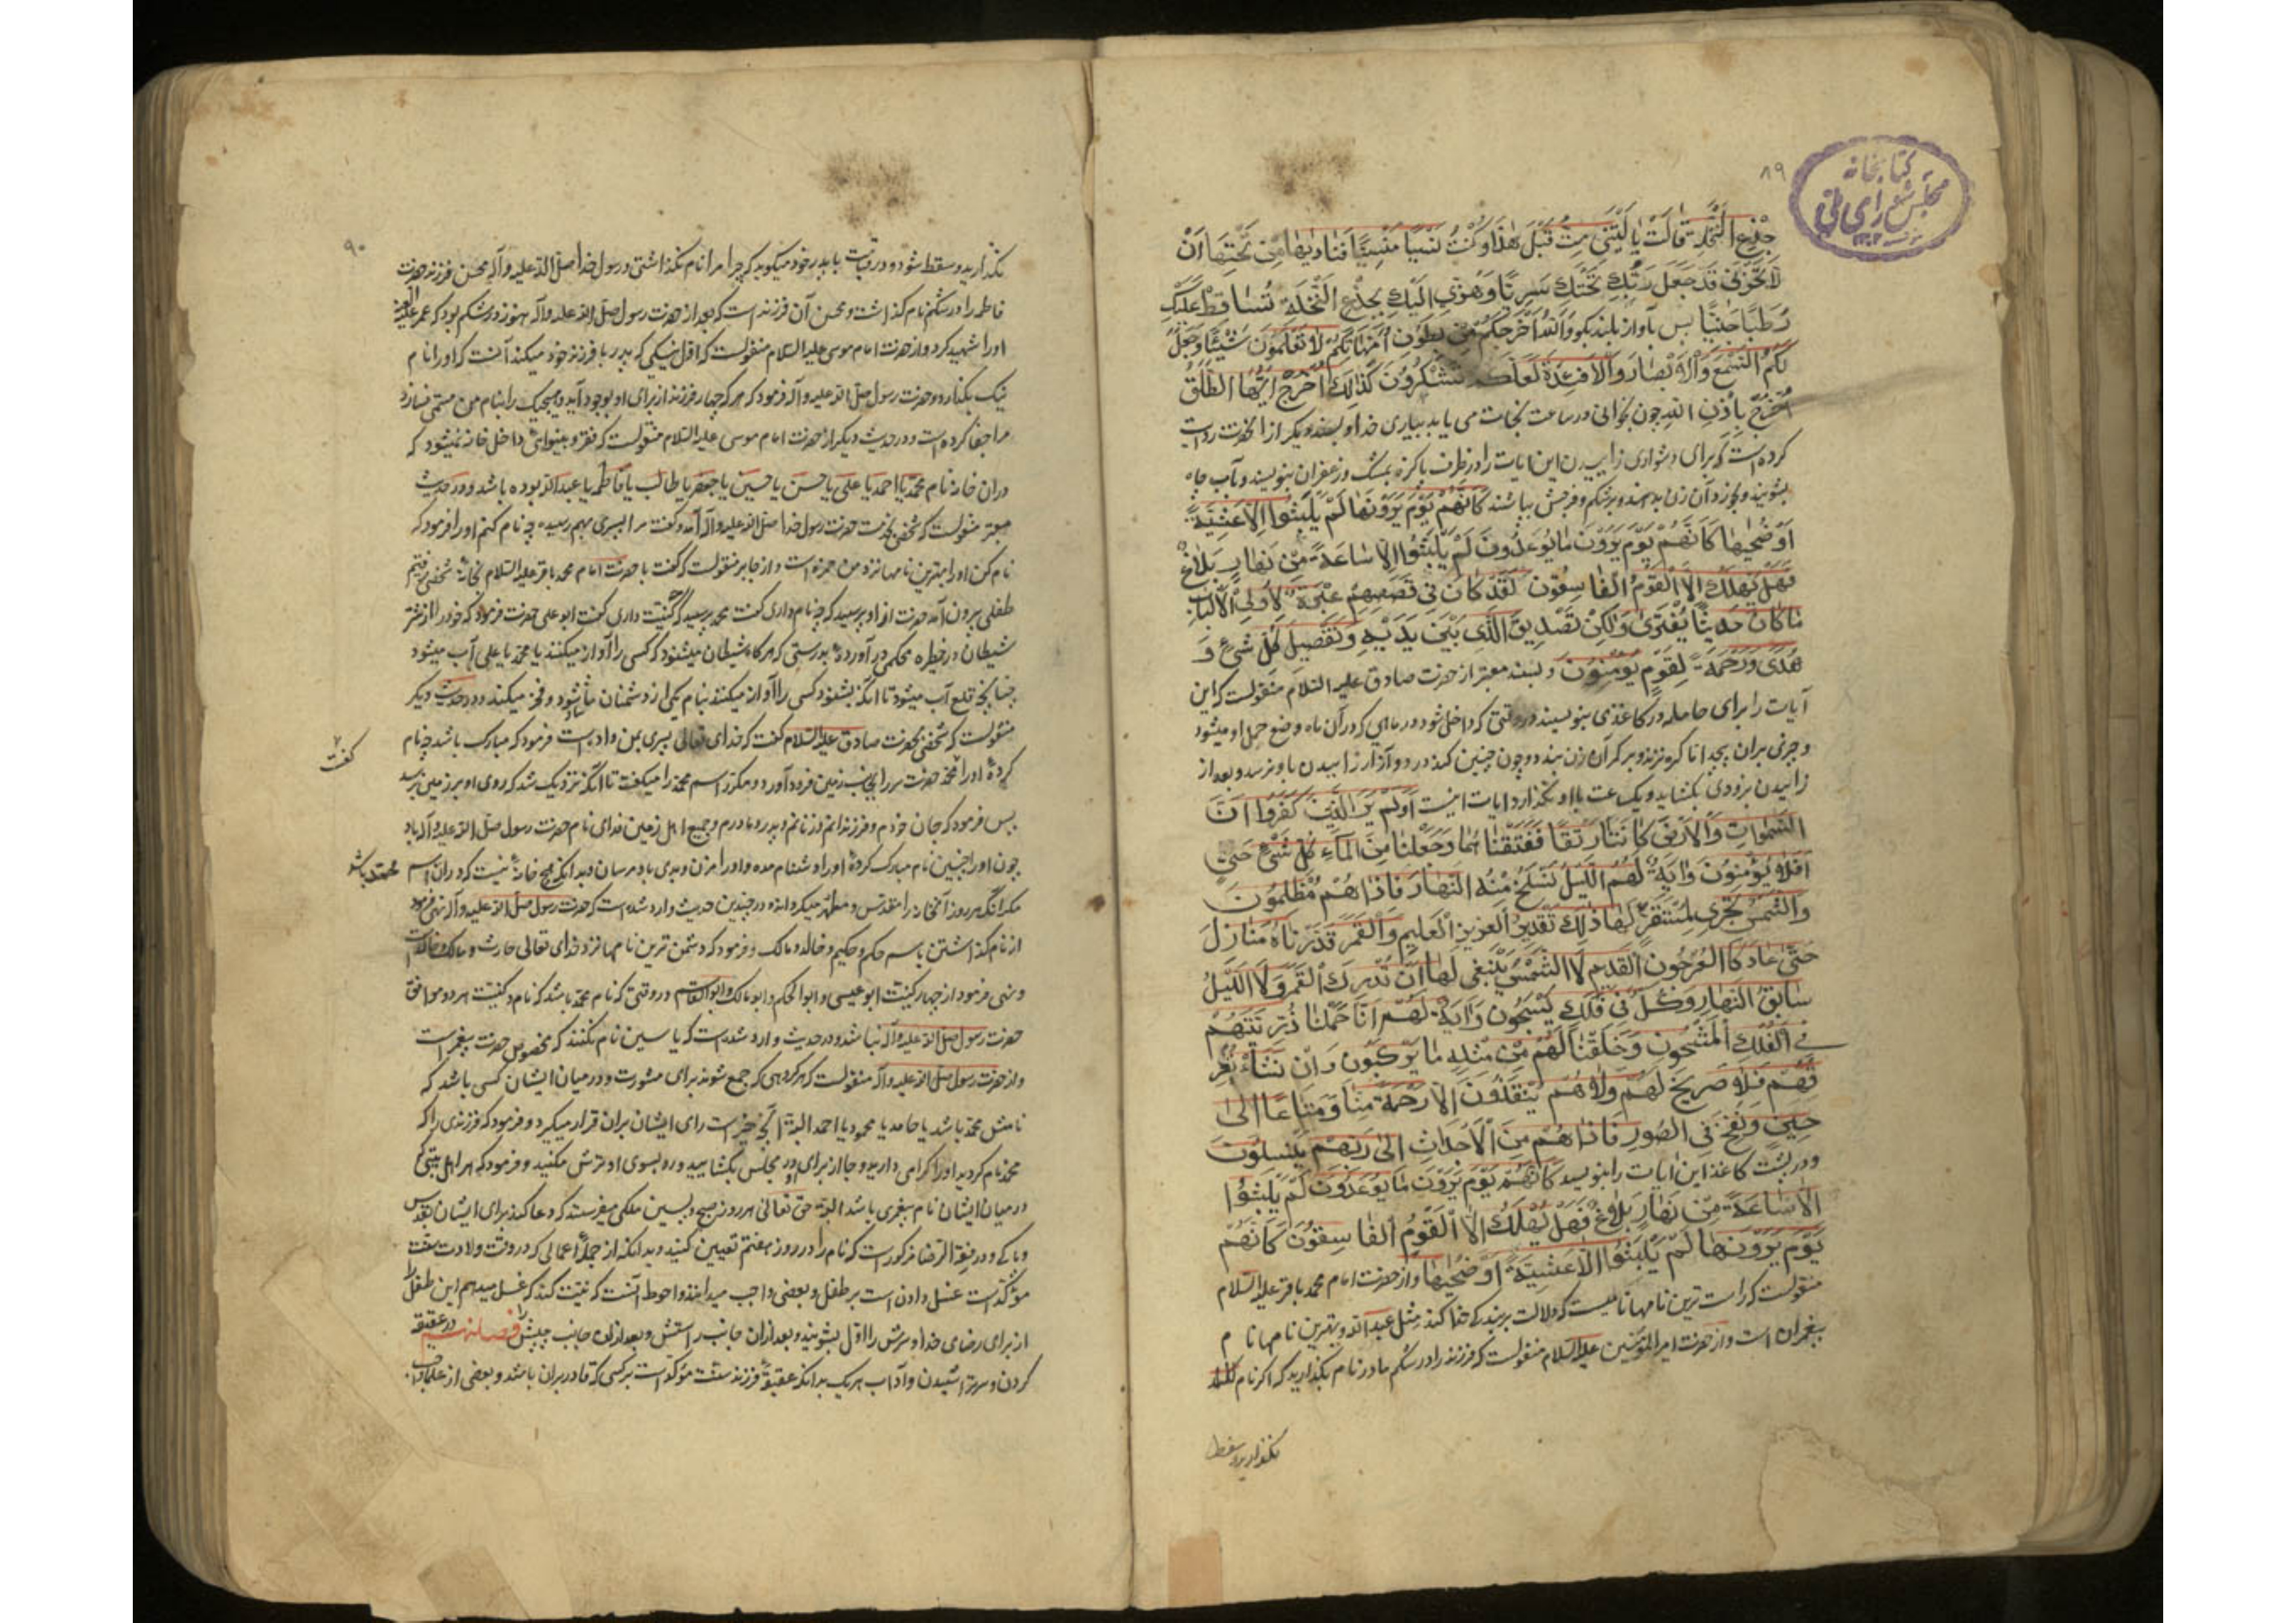 ۸۹
کتابخانه
مجلس شورای ملی
جِذْعِ النَّخْلَةِ قالَتْ یا لَیْتَنی مِتُّ قَبْلَ هٰذا وَکُنْتُ نَسْیاً مَنْسِیّاً فَنادیٰها مِنْ تَحْتِها اَنْ
لا تَحْزَنی قَدْ جَعَلَ رَبُّكِ تَحْتَكِ سَرِیّاً وَهُزّی اِلَیْكِ بِجِذْعِ النَّخْلَةِ تُساقِطْ عَلَیْكِ
رُطَباً جَنِیّاً پس بآواز بلند بکو وَاللهُ اَخْرَجَکُمْ مِنْ بُطُونِ اُمَّهاتِکُمْ لا تَعْلَمُونَ شَیْئاً وَجَعَلَ
لَکُمُ السَّمْعَ وَالْاَبْصارَ وَالْاَفْئِدَةَ لَعَلَّکُمْ تَشْکُرُونَ کَذٰلِكَ اُخْرُجْ اَیُّهَا الطَّلْقُ
اُخْرُجْ بِاِذْنِ اللهِ چون بخوانی در ساعت نجات می یابد بیاری خدا و بسند دیکر از انحضرت روایت
کرده است که برای دشواری زاییدن این ایات را در ظرف پاکیزه بمشک و زعفران بنویسند و بآب چاه
بشویند و بخورد آن زن بدهند و بر شکم و فرجش بپاشند کَاَنَّهُمْ یَوْمَ یَرَوْنَها لَمْ یَلْبَثُوا اِلّا عَشِیَّةً
اَوْ ضُحیٰها کَاَنَّهُمْ یَوْمَ یَرَوْنَ ما یُوعَدُونَ لَمْ یَلْبَثُوا اِلّا ساعَةً مِنْ نَهارٍ بَلاغٌ
فَهَلْ یُهْلَكُ اِلَّا الْقَوْمُ الْفاسِقُونَ لَقَدْ کانَ فی قَصَصِهِمْ عِبْرَةٌ لِاُولِی الْاَلْبابِ
ما کانَ حَدیثاً یُفْتَریٰ وَلٰکِنْ تَصْدیقَ الَّذی بَیْنَ یَدَیْهِ وَتَفْصیلَ کُلِّ شَیْءٍ وَ
هُدًی وَرَحْمَةً لِقَوْمٍ یُؤْمِنُونَ و بسند معتبر از حضرت صادق علیه السلام منقولست که این
آیات را برای حامله در کاغذی بنویسند در وقتی که داخل شود در ماهی که در آن ماه وضع حمل او میشود
و چرمی بران بپیچد اما کره نزند و بر کمر آن زن بندد و چون چنین کند درد و آزار زاییدن باو نرسد و بعد از
زاییدن بزودی بکشاید و یک ساعت با او نکذارد ایات اینست اَوَلَمْ یَرَ الَّذینَ کَفَرُوا اَنَّ
السَّمٰواتِ وَالْاَرْضَ کانَتا رَتْقاً فَفَتَقْناهُما وَجَعَلْنا مِنَ الْماءِ کُلَّ شَیْءٍ حَیٍّ
اَفَلا یُؤْمِنُونَ وَایَةٌ لَهُمُ اللَّیْلُ نَسْلَخُ مِنْهُ النَّهارَ فَاِذا هُمْ مُظْلِمُونَ
وَالشَّمْسُ تَجْری لِمُسْتَقَرٍّ لَها ذٰلِكَ تَقْدیرُ الْعَزیزِ الْعَلیمِ وَالْقَمَرَ قَدَّرْناهُ مَنازِلَ
حَتّیٰ عادَ کَالْعُرْجُونِ الْقَدیمِ لَا الشَّمْسُ یَنْبَغی لَها اَنْ تُدْرِكَ الْقَمَرَ وَلَا اللَّیْلُ
سابِقُ النَّهارِ وَکُلٌّ فی فَلَكٍ یَسْبَحُونَ وَایَةٌ لَهُمْ اَنّا حَمَلْنا ذُرِّیَّتَهُمْ
فِی الْفُلْكِ الْمَشْحُونِ وَخَلَقْنا لَهُمْ مِنْ مِثْلِهِ ما یَرْکَبُونَ وَاِنْ نَشَأْ نُغْرِ
قْهُمْ فَلا صَریخَ لَهُمْ وَلا هُمْ یُنْقَذُونَ اِلّا رَحْمَةً مِنّا وَمَتاعاً اِلیٰ
حینٍ وَنُفِخَ فِی الصُّورِ فَاِذا هُمْ مِنَ الْاَجْداثِ اِلیٰ رَبِّهِمْ یَنْسِلُونَ
و در پشت کاغذ این ایات را بنویسد کَاَنَّهُمْ یَوْمَ یَرَوْنَ ما یُوعَدُونَ لَمْ یَلْبَثُوا
اِلّا ساعَةً مِنْ نَهارٍ بَلاغٌ فَهَلْ یُهْلَكُ اِلَّا الْقَوْمُ الْفاسِقُونَ کَاَنَّهُمْ
یَوْمَ یَرَوْنَها لَمْ یَلْبَثُوا اِلّا عَشِیَّةً اَوْ ضُحیٰها و از حضرت امام محمد باقر علیه السلام
منقولست که راست ترین نامها نامیست که دلالت بر بندکی خدا کند مثل عبدالله و بهترین نامها نام
پیغمبران است و از حضرت امیر المؤمنین علیه السلام منقولست که فرزند را در شکم مادر نام بکذارید که اکر نام
نکذارید و سقط
۹۰
نکذارید و سقط شود در قیامت با پدر خود میکوید که چرا مرا نام نکذاشتی و رسول خدا صلی الله علیه وآله محسن فرزند حضرت
فاطمه را در شکم نام کذاشت و محسن آن فرزند است که بعد از حضرت رسول صلی الله علیه وآله هنوز در شکم بود که عمر
او را شهید کرد و از حضرت امام موسی علیه السلام منقولست که اول نیکی که پدر با فرزند خود میکند آنست که او را نام
نیک بکذارد و حضرت رسول صلی الله علیه وآله فرمود که هر که چهار فرزند از برای او بوجود آید و هیچیک را بنام من مسمی نسازد
مرا جفا کرده است و در حدیث دیکر از حضرت امام موسی علیه السلام منقولست که فقر و بینوایی داخل خانه نمیشود که
دران خانه نام محمد یا احمد یا علی یا حسن یا حسین یا جعفر یا طالب یا فاطمه یا عبدالله بوده باشد و در حدیث
معتبر منقولست که شخصی بخدمت حضرت رسول خدا صلی الله علیه وآله آمد و کفت مرا پسری بهم رسیده چه نام کنم او را فرمود که
نام کن او را بهترین نامها نزد من حمزه است و از جابر منقولست که کفت با حضرت امام محمد باقر علیه السلام بخانه شخصی رفتم
طفلی بیرون آمد حضرت از او پرسید که چه نام داری کفت محمد پرسید که چه کنیت داری کفت ابو علی حضرت فرمود که خود را از شر
شیطان در حظیره محکمی در آوردهٔ بدرستی که هرکاه شیطان میشنود که کسی را آواز میکنند یا محمد یا علی آب میشود
چنانچه قلع آب میشود تا انکه بشنود کسی را آواز میکنند بنام یکی از دشمنان ما شاد شود و فخر میکند و در حدیث دیکر
منقولست که شخصی بحضرت صادق علیه السلام کفت که خدای تعالی پسری بمن داده است فرمود که مبارک باشد چه نام
کفت
کردهٔ او را محمد حضرت سر را بجانب زمین فرود آورد و مکرر اسم محمد را میکفت تا انکه نزدیک شد که روی او بر زمین برسد
پس فرمود که جان خودم و فرزندانم و زنانم و پدر و مادرم و جمیع اهل زمین فدای نام حضرت رسول صلی الله علیه وآله باد
چون او را چنین نام مبارک کردهٔ او را دشنام مده و او را مزن و بدی باو مرسان و بدانکه هیچ خانهٔ نیست که دران اسم
محمد باشد
مکر انکه هر روز آنخانه را مقدس و مطهر میکردانند و در چندین حدیث وارد شده است که حضرت رسول صلی الله علیه وآله نهی فرمود
از نام کذاشتن باسم حکم و حکیم و خالد و مالک و فرمود که دشمن ترین نامها نزد خدای تعالی حارث و مالک و خالد است
و نهی فرمود از چهار کنیت ابو عیسی و ابو الحکم و ابو مالک و ابو القاسم در وقتی که نام محمد باشد که نام و کنیت هر دو موافق
حضرت رسول صلی الله علیه وآله نباشد و در حدیث وارد شده است که یاسین نام نکنند که مخصوص حضرت پیغمبر است
و از حضرت رسول صلی الله علیه وآله منقولست که هر کروهی که جمع شوند برای مشورت و در میان ایشان کسی باشد که
نامش محمد باشد یا حامد یا محمود یا احمد البته آنچه خیر است رای ایشان بران قرار میکیرد و فرمود که فرزندی را که
محمد نام کردید او را کرامی دارید و جا از برای او در مجلس بکشایید و رو بسوی او ترش مکنید و فرمود که هر اهل بیتی که
در میان ایشان نام پیغمبری باشد البته حق تعالی هر روز صبح و پسین ملکی میفرستد که دعا کند برای ایشان بتقدس
و پاکی و در فقه الرضا مذکور است که نام را در روز هفتم تعیین کنید و بدانکه از جملهٔ اعمالی که در وقت ولادت سنت
مؤکد است غسل دادن است بر طفل و بعضی واجب میدانند و احوط آنست که نیت کند که غسل میدهم این طفل را
از برای رضای خدا و سرش را اول بشویند و بعد ازان جانب راستش و بعد ازان جانب چپش را در عقیقه
کردن و سر تراشیدن و آداب هریک بدانکه عقیقهٔ فرزند سنت مؤکد است بر کسی که قادر بران باشد و بعضی از علما